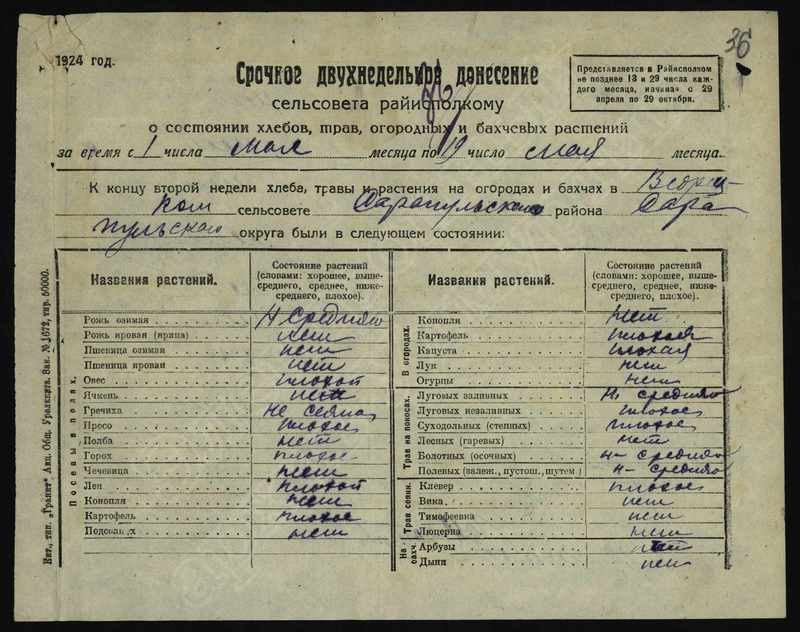 36
1924 год.
Срочное двухнедельное донесение
сельсовета райисполкому
Представляется в Райисполком
не позднее 13 и 29 числа каж-
дого месяца, начиная с 29
апреля по 29 октября.
о состоянии хлебов, трав, огородных и бахчевых растений
за время с 1 числа мая месяца по 19 число мая месяца.
К концу второй недели хлеба, травы и растения на огородах и бахчах в
ком сельсовете Сарапульского района Сара
пульском округа были в следующем состоянии:
Названия растений.
Состояние растений
(словами: хорошее, выше-
среднего, среднее, ниже-
среднего, плохое).
Посевы в полях.
Рожь озимая н средняго
Рожь яровая (ярица) нет
Пшеница озимая нет
Пшеница яровая нет
Овес плохой
Ячмень нет
Гречиха не сеяна
Просо плохое
Полба нет
Горох плохое
Чечевица нет
Лен плохой
Конопля нет
Картофель плохое
Подсолн х нет
Названия растений.
Состояние растений
(словами: хорошее, выше-
среднего, среднее, ниже-
среднего, плохое).
В огородах.
Конопля нет
Картофель плохая
Капуста плохая
Лук нет
Огурцы нет
Трав на покосах.
Луговых заливных н средняго
Луговых незаливных плохое
Суходольных (степных) плохое
Лесных (гаревых) нет
Болотных (осочных) н- средняго
Полевых (залеж., пустош., шутем) н- средняго
Трав сеянн.
Клевер плохое
Вика нет
Тимофеевка нет
Люцерна нет
На бахч.
Арбузы нет
Дыни нет
Ект., тип. „Гранит" Акц. Общ. Уралкнига. Зак. № 1672, тир. 50000.